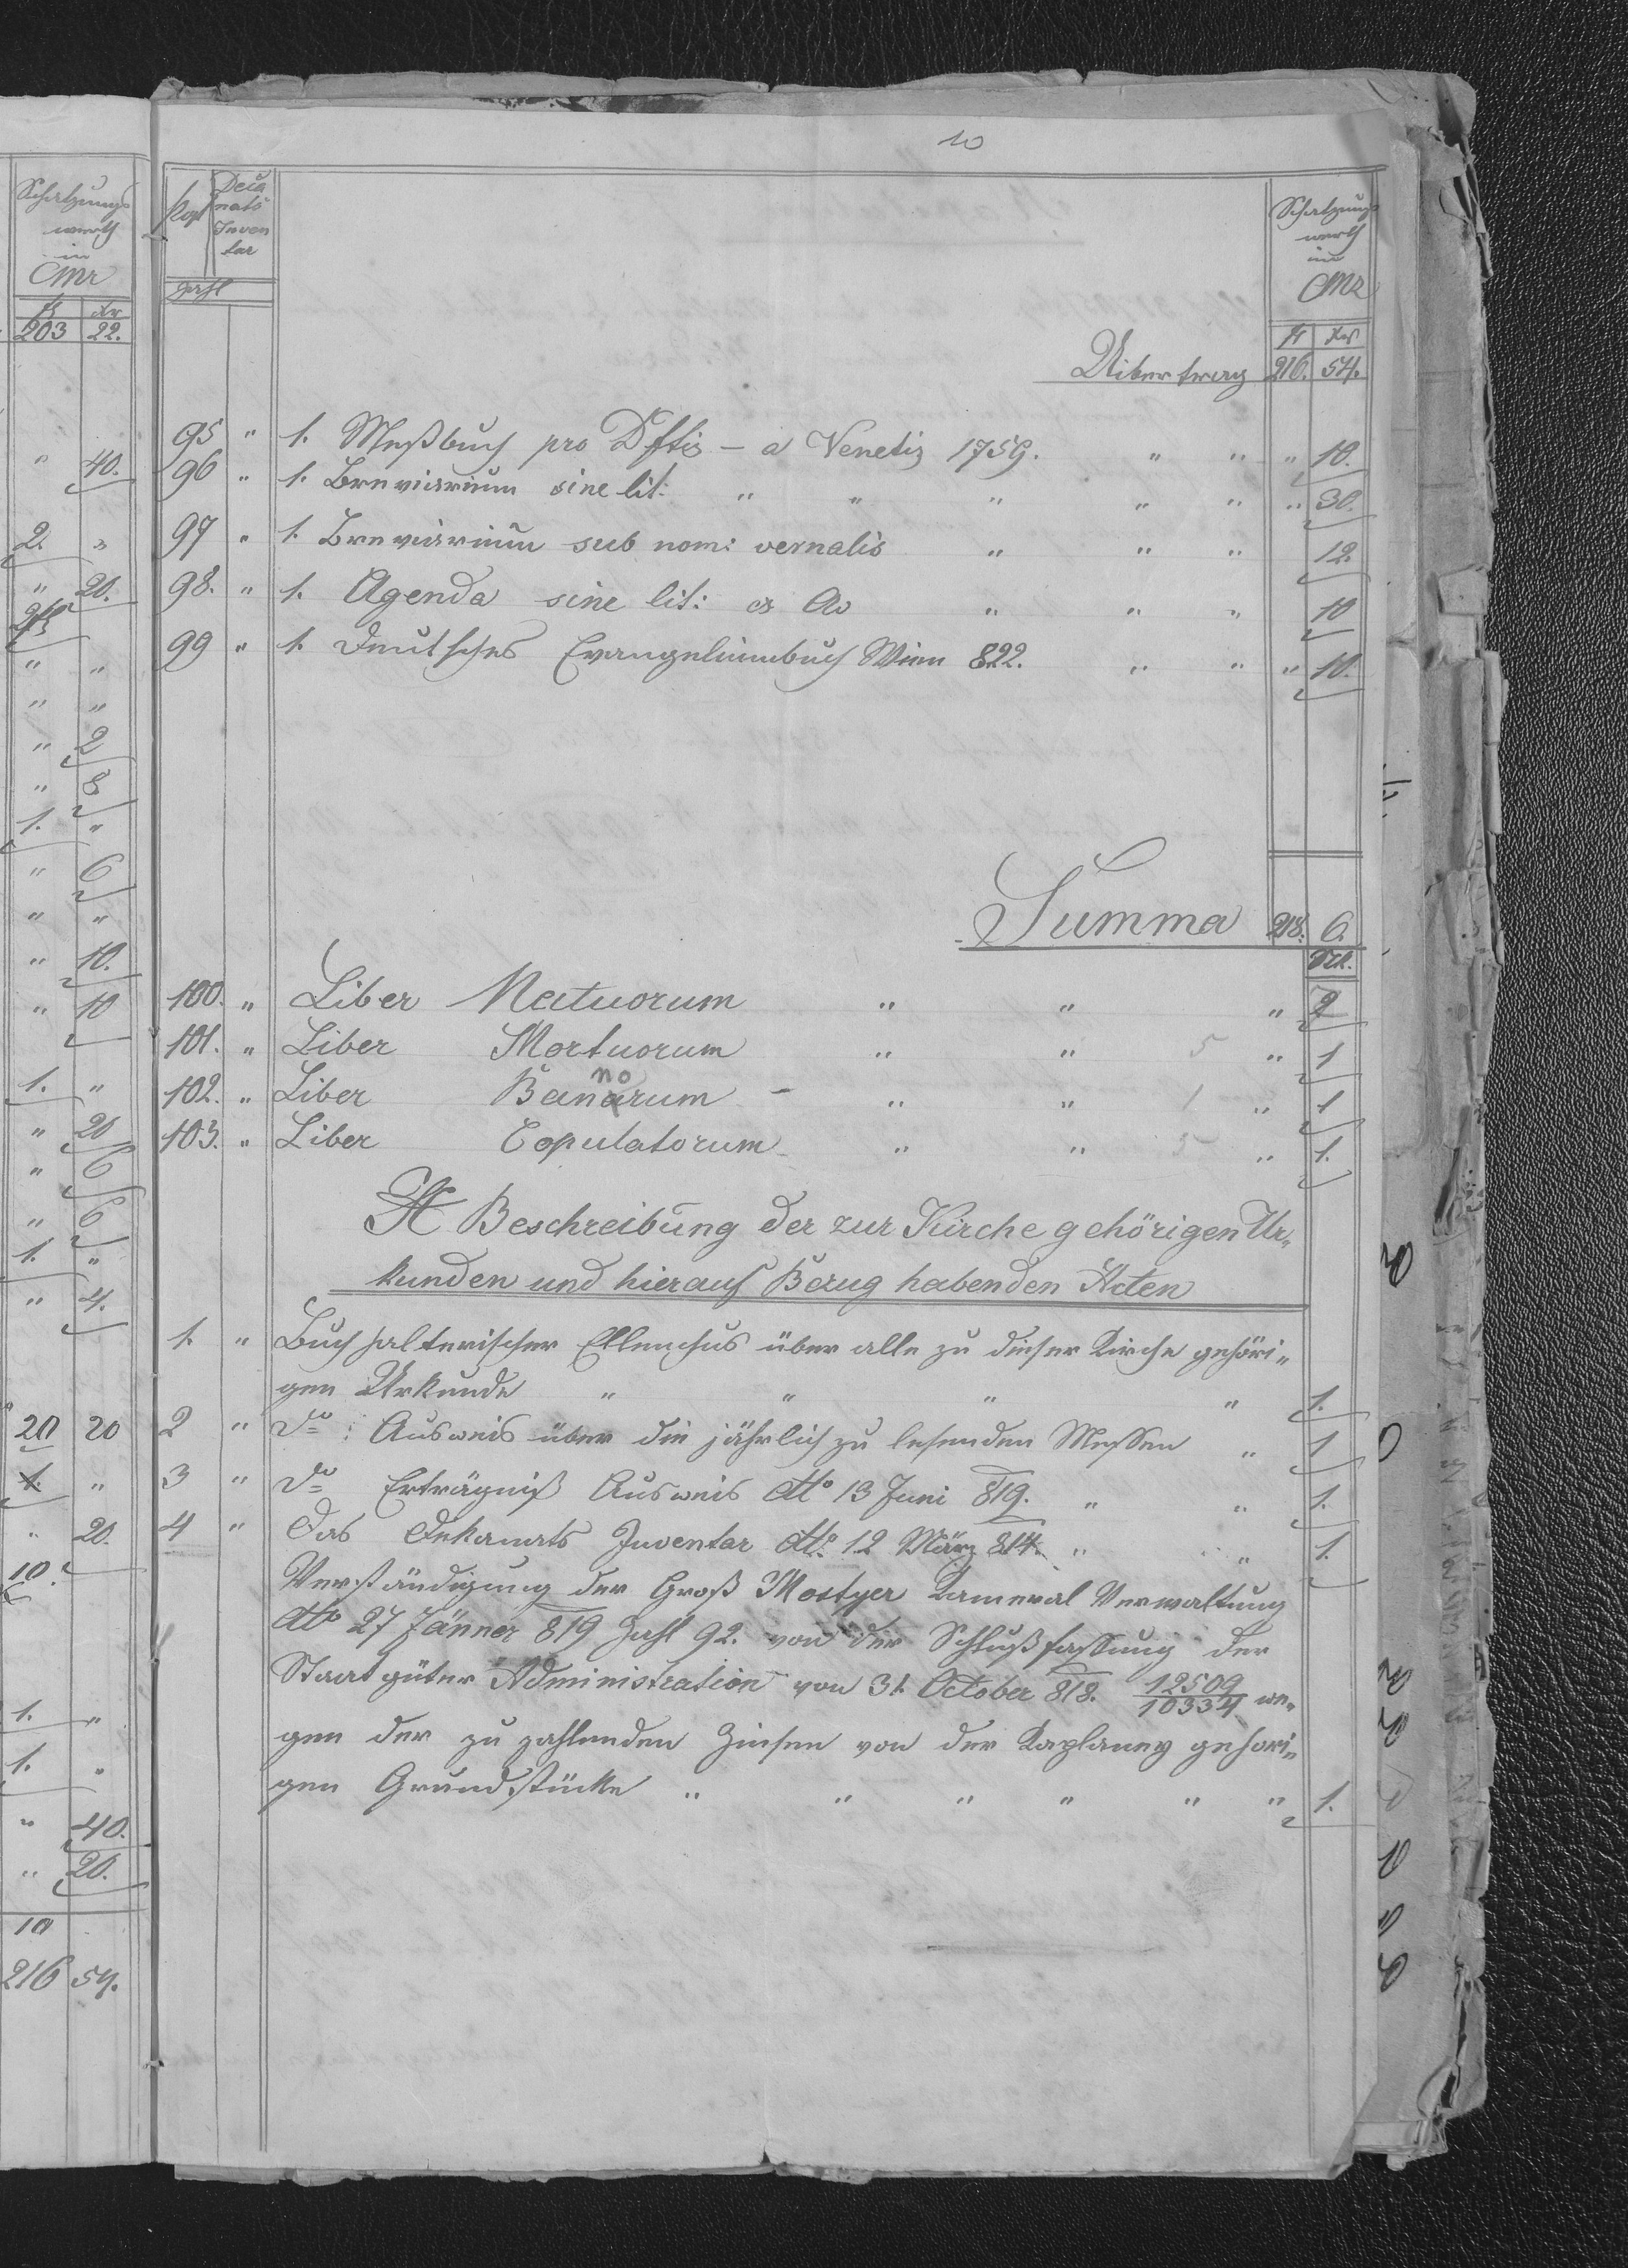 10
Schatzungs
werth
in
CMz
fl xr
203 22.
" 40.
2. "
" 20.
" "
" "
" 2
" 8
1. "
" 6
" "
" 10.
" 10
1. "
" 20
" 6
" 6
1. "
" 4.
20 20
1. "
" 20.
10.
1. "
1. "
" 40.
" 20.
10
216 54.
Post Decanats Inventar
Zahl
Schatzungs
werth
in
CMz
fl xr
Uibertrag 216. 54.
95 " 1. Meßbuch pro Dfftis – a Venetis 1759. " " " 10.
96 " 1. Breviarium sine lit: " " " " " " 30.
97 " 1. Breviariũm sub nom: vernalis " " " 12.
98. " 1. Agenda sine lit: & Ao " " " 10
99 " 1. Deutsches Evangeliumbuch Wien 822. " " " 10.
Summa 218. 6.
100. " Liber Natuorum " " " 2
101. " Liber Mortuorum " " 5 " 1
102. " Liber Banarum no – " " 1 " 1
103. " Liber Copulatorum " " 5 " 1.
Beschreibung der zur Kirche gehörigen Ur„
kunden und hierauf Bezug habenden Acten
1. " Buchhalterischer Ellenchus über alle zu dieser Kirche gehöri„
gen Urkunde " " " " 1.
2 " do: Ausweis über die jährlich zu lesenden Messen " 1
3 " do Erträgniß Ausweis dto 13 Juni 819. " " 1.
4 " Das Dekanats Inventar dto. 12 März 814. " " 1.
Verständigung der Groß Mostyer Kameral Verwaltung
dto 27 Jänner 819 Zahl 92. von der Schlußfassung der
Staatgüter Administration von 31. October 818. 12509/10334 we„
gen der zu zahlenden Zinsen von der Kaplaney gehori„
gen Grundstücke " " " " " " 1.